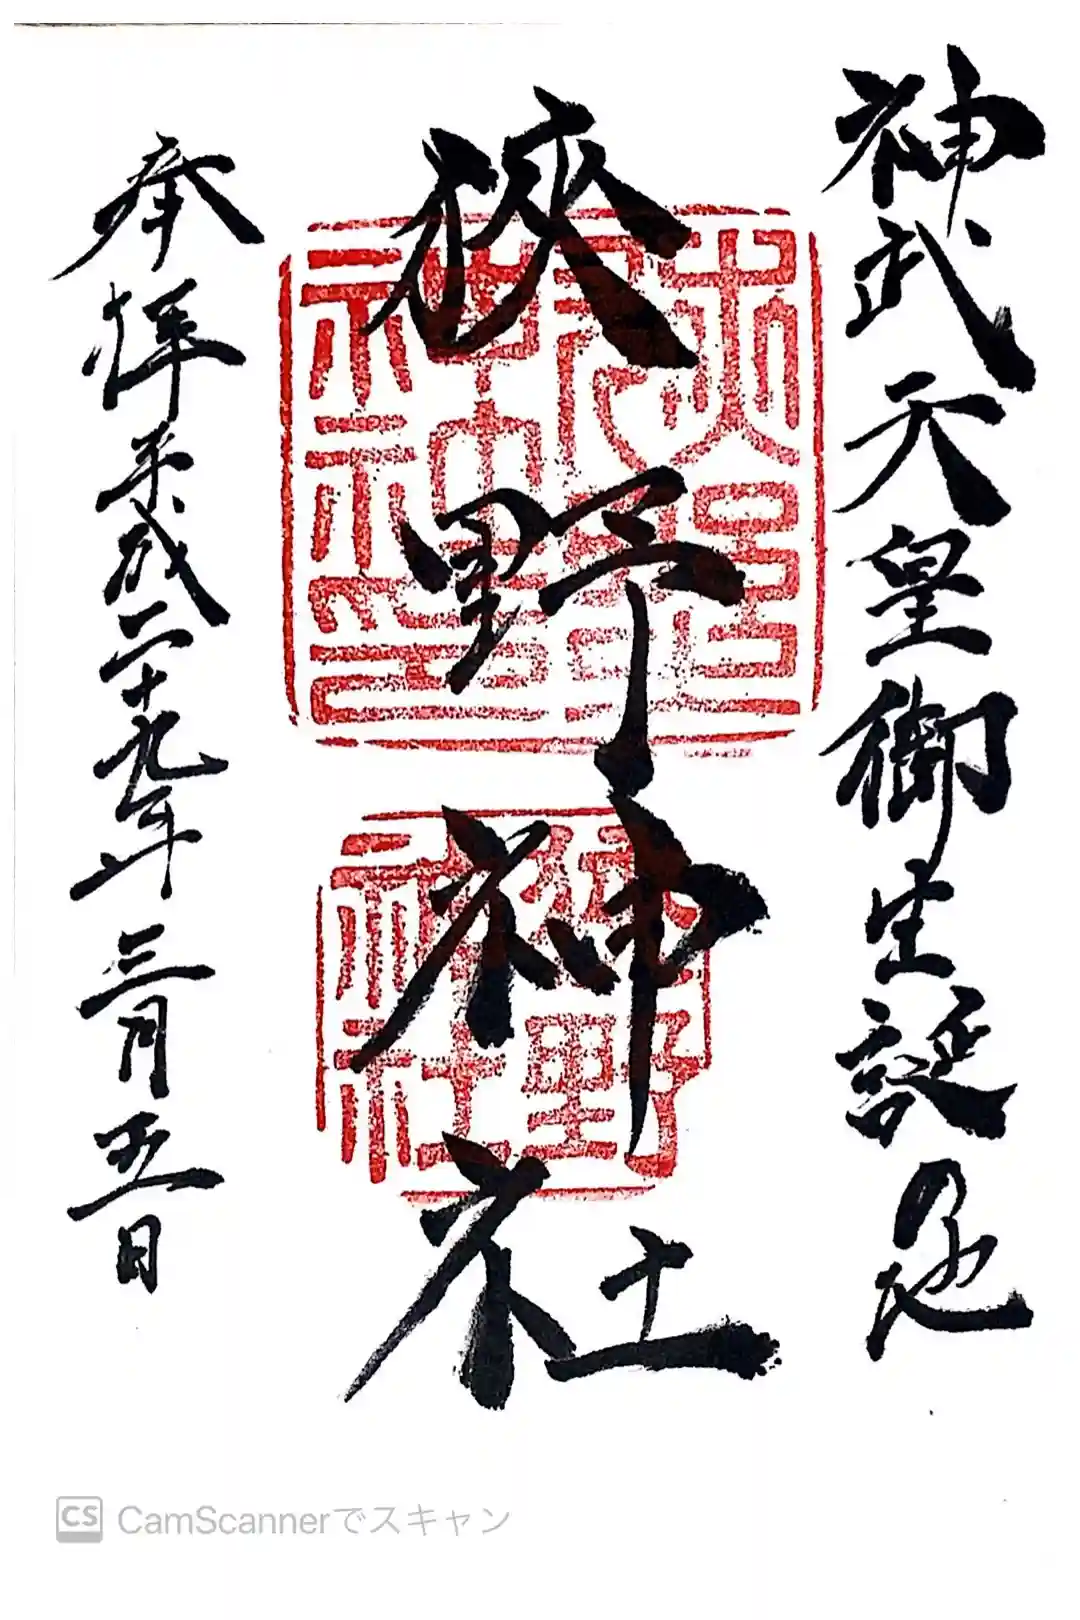 神武天皇御生誕の地
狭野神社
奉拝 平成二十九年三月五日
CS CamScannerでスキャン